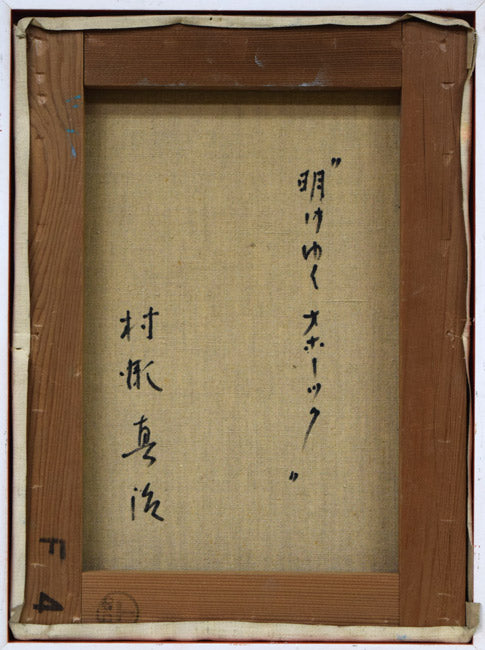 "明けゆく オホーツク"
村瀬 真治
F 4